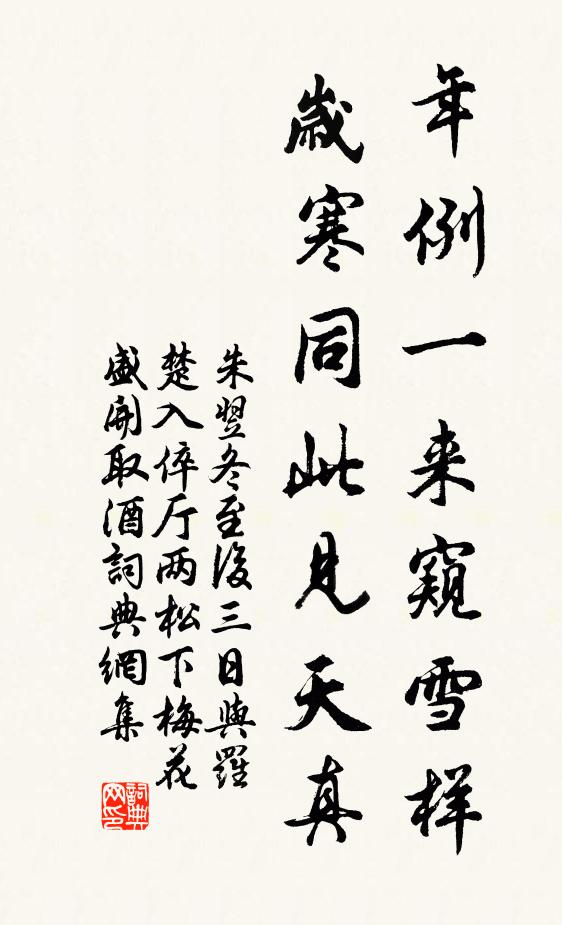 年例一来窥雪样
歲寒同此見天真
朱翌冬至後三日與羅
楚入倅厅两松下梅花
盛開取酒詞典網集
詞典网印